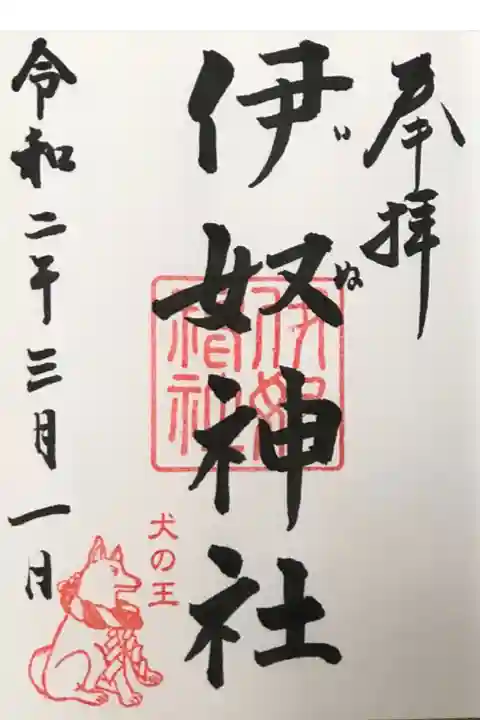 奉拝
伊奴神社
いぬ
令和二年三月一日
犬の王